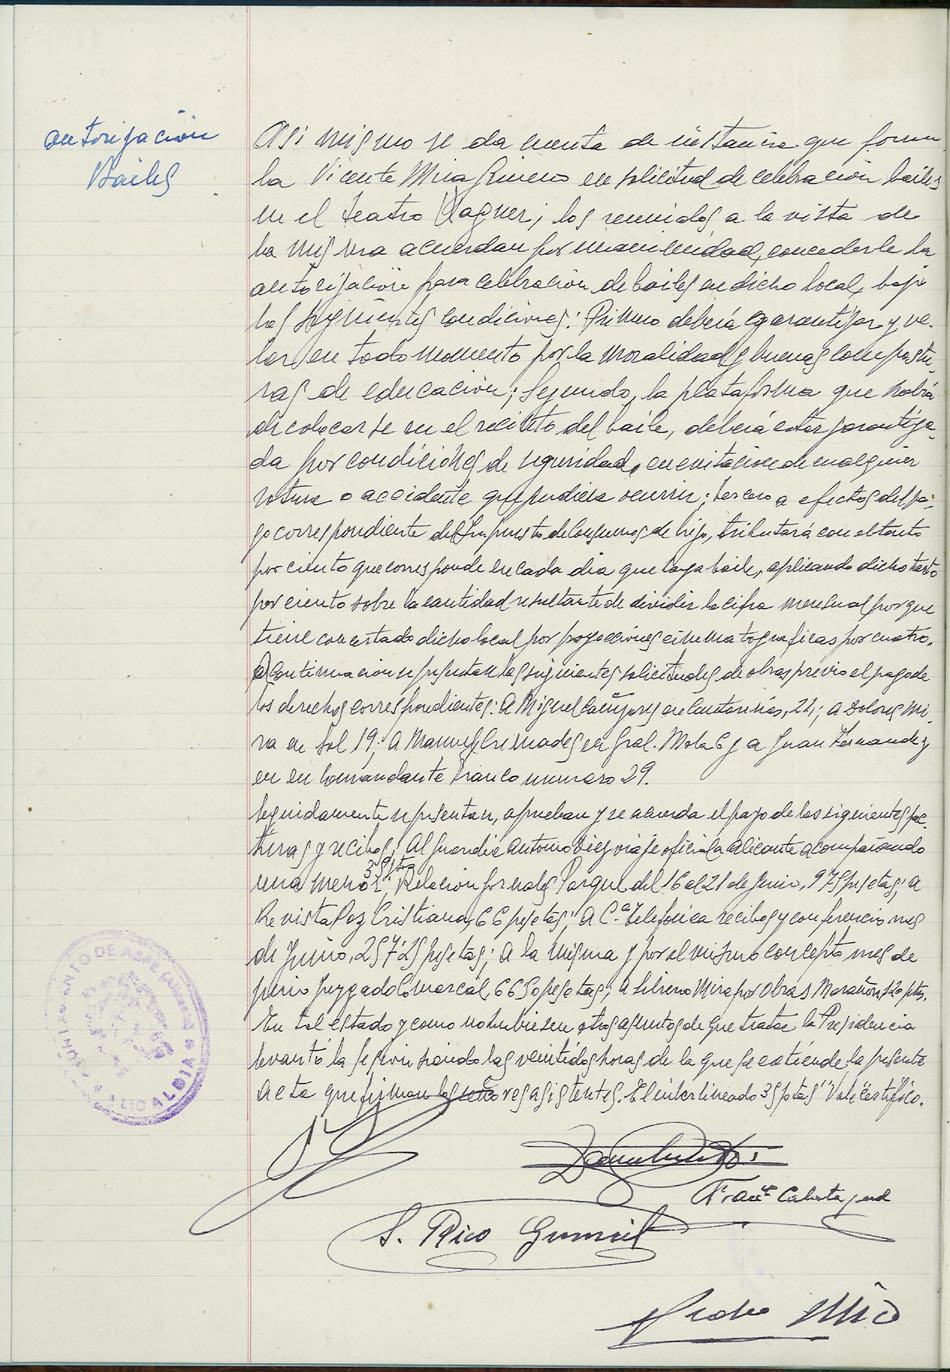 autorización
Bailes
Asi mismo se da cuenta de instancia que formu
la Vicente Mira Gimeno en solicitud de celebración bailes
en el teatro Wagner; los reunidos a la vista de
la misma acuerdan por unanimidad, concederle la
autorización para celebración de bailes en dicho local, bajo
las siguientes condiciones: Primero deberá garantizar y ve-
lar en todo momento por la moralidad y buenas compostu-
ras de educación; Segundo, la plataforma que habrá
de colocarse en el recinto del baile, deberá estar garantiza-
da por condiciones de seguridad, en evitación de cualquier
rotura o accidente que pudiera ocurrir; tercero a efectos del pa-
go correspondiente del Impuesto de Consumos de lujo, tributará con el tanto
por ciento que corresponde en cada dia que haya baile, aplicando dicho tanto
por ciento sobre la cantidad resultante de dividir la cifra mensual por que
tiene concertado dicho local por proyecciones cinematograficas por cuatro.
A continuación se presentan las siguientes solicitudes de obras previo el pago de
los derechos correspondientes: A Miguel Cañizares en Cantarerias, 22; a Dolores Mi-
ra en Sol 19; A Manuel Cremades en Gral. Mola 6 y a Juan Fernandez
en en Comandante Franco numero 29.
Seguidamente se presentan, aprueban y se acuerda el pago de las siguientes fac-
turas y recibos; Al guardia Antonio Diez viaje oficial a Alicante acompañando
35 ptas
una menor; Relación jornales Parque del 16 al 21 de Junio, 975 pesetas; a
Revista Paz Cristiana, 66 pesetas; A C.ª Telefónica recibos y conferencias mes
de Junio, 257'25 pesetas; a la misma y por el mismo concepto mes de
junio Juzgado Comarcal, 66'50 pesetas; a Mira por Obras Marañon, ptas.
En tal estado y como no hubiesen otros asuntos de que tratar la Presidencia
levantó la sesión siendo las veintidos horas de la que se extiende la presente
acta que firman los señores asistentes. El interlineado 35 ptas "Vale" certifico.
AYUNTAMIENTO DE ASPE (Alicante)
ALCALDIA
Franc.º Calatayud
S. Rico Gumiel
Pedro Mico